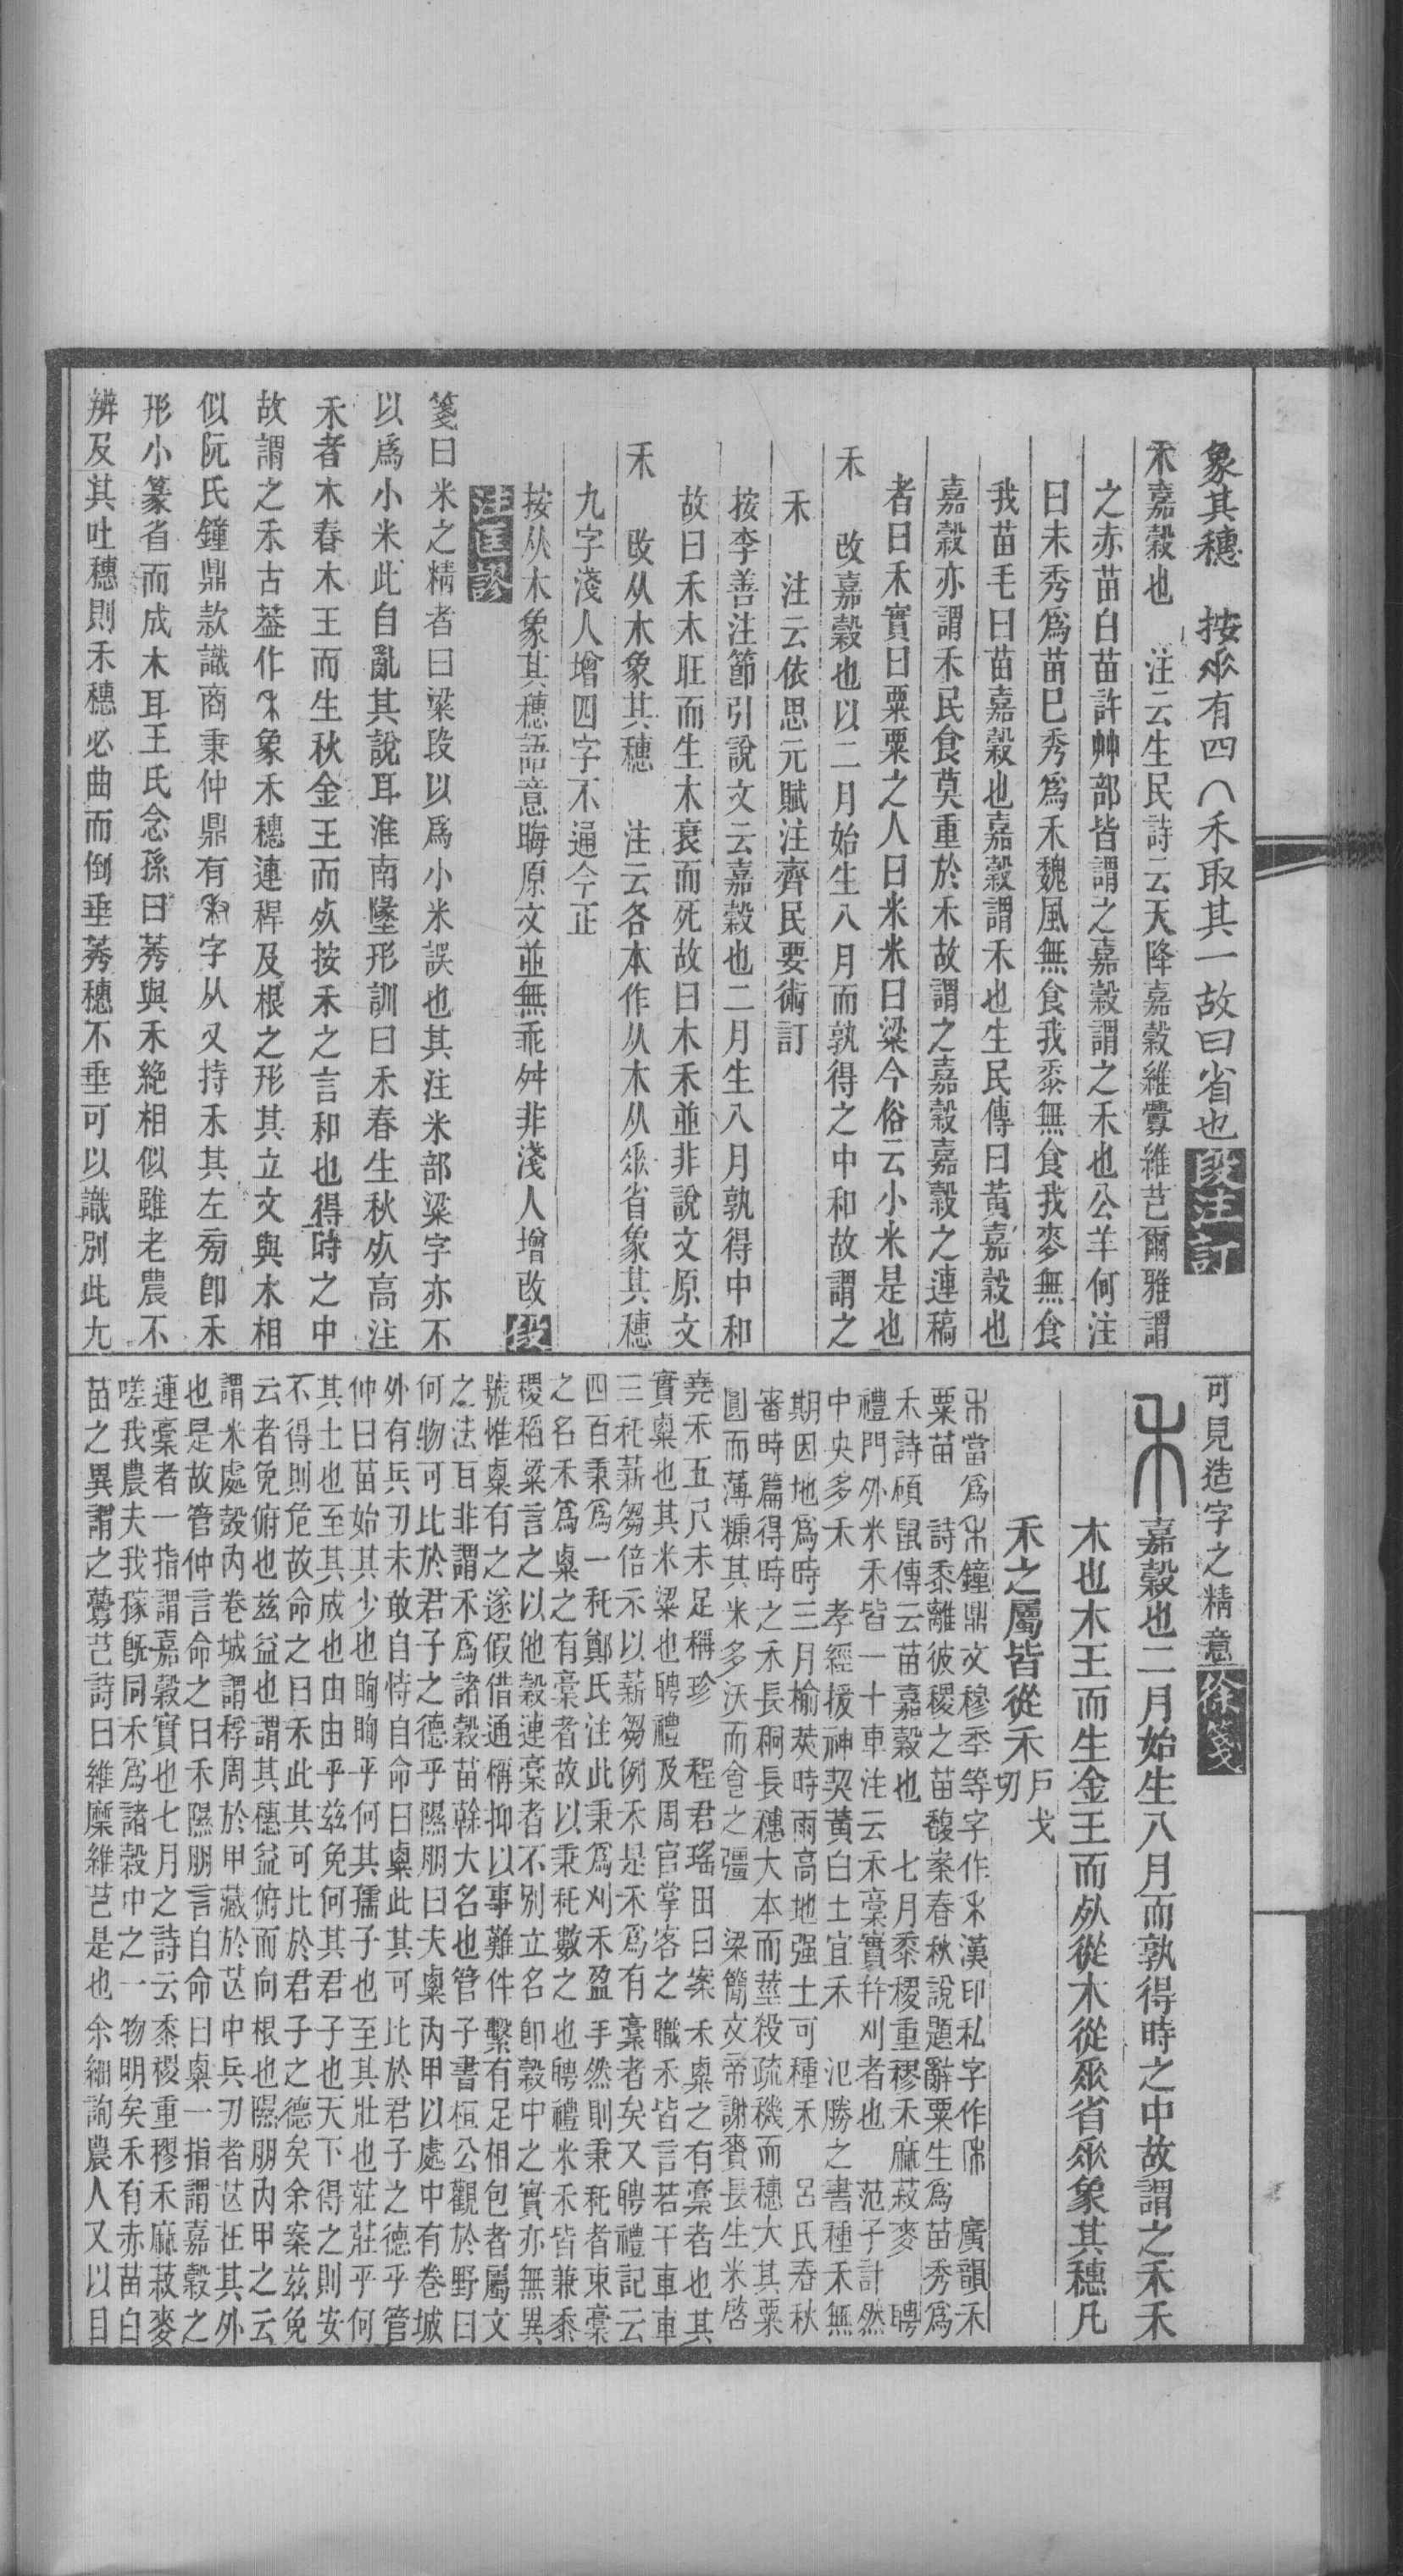 象其穗　按𠂹有四𠆢禾取其一故曰省也段注訂
禾嘉穀也　注云生民詩云天降嘉穀維虋維芑爾雅謂
之赤苗白苗許艸部皆謂之嘉穀謂之禾也公羊何注
曰未秀爲苗已秀爲禾魏風無食我黍無食我麥無食
我苗毛曰苗嘉穀也嘉穀謂禾也生民傳曰黃嘉穀也
嘉穀亦謂禾民食莫重於禾故謂之嘉穀嘉穀之連稿
者曰禾實曰粟粟之人曰米米曰粱今俗云小米是也
禾　改嘉穀也以二月始生八月而孰得之中和故謂之
禾　注云依思元賦注齊民要術訂
按李善注節引說文云嘉穀也二月生八月孰得中和
故曰禾木旺而生木衰而死故曰木禾並非說文原文
禾　改从木象其穗　注云各本作从木从𠂹省象其穗
九字淺人增四字不通今正
按从木象其穗語意晦原文並無乖舛非淺人增改段
注匡謬
箋曰米之精者曰粱段以爲小米誤也其注米部粱字亦不
以爲小米此自亂其說耳淮南墬形訓曰禾春生秋死高注
禾者木春木王而生秋金王而死按禾之言和也得時之中
故謂之禾古葢作象禾穗連稈及根之形其立文與木相
似阮氏鐘鼎款識商秉仲鼎有字从又持禾其左旁卽禾
形小篆省而成木耳王氏念孫曰莠與禾絶相似雖老農不
辨及其吐穗則禾穗必曲而倒垂莠穗不垂可以識別此尤
可見造字之精意徐箋
禾嘉穀也二月始生八月而孰得時之中故謂之禾禾
木也木王而生金王而死從木從𠂹省𠂹象其穗凡
禾之屬皆從禾戶戈切
當爲鐘鼎文穆季等字作漢印私字作　廣韻禾
粟苗　詩黍離彼稷之苗馥案春秋說題辭粟生爲苗秀爲
禾詩碩鼠傳云苗嘉穀也　七月黍稷重穋禾麻菽麥　聘
禮門外米禾皆一十車注云禾稾實幷刈者也　范子計然
中央多禾　孝經援神契黃白土宜禾　氾勝之書種禾無
期因地爲時三月榆莢時雨高地强土可種禾　呂氏春秋
審時篇得時之禾長秱長穗大本而莖殺疏穖而穗大其粟
圓而薄糠其米多沃而食之彊　梁簡文帝謝賚長生米啓
堯禾五尺未足稱珍　程君瑤田曰案禾粟之有稾者也其
實粟也其米粱也聘禮及周官掌客之職禾皆言若干車車
三秅薪芻倍禾以薪芻例禾是禾爲有稾者矣又聘禮記云
四百秉爲一秅鄭氏注此秉爲刈禾盈手然則秉秅者束稾
之名禾爲粟之有稾者故以秉秅數之也聘禮米禾皆兼黍
稷稻粱言之以他穀連稾者不別立名卽穀中之實亦無異
號惟粟有之遂假借通稱抑以事難件繫有足相包者屬文
之法百非謂禾爲諸穀苗榦大名也管子書桓公觀於野曰
何物可比於君子之德乎隰朋曰夫粟內甲以處中有卷城
外有兵刃未敢自恃自命曰粟此其可比於君子之德乎管
仲曰苗始其少也眴眴乎何其孺子也至其壯也莊莊乎何
其士也至其成也由由乎兹免何其君子也天下得之則安
不得則危故命之曰禾此其可比於君子之德矣余案兹免
云者免俯也兹益也謂其穗益俯而向根也隰朋內甲之云
謂米處榖內卷城謂稃周於甲藏於苙中兵刃者苙在其外
也是故管仲言命之曰禾隰朋言自命曰粟一指謂嘉穀之
連稾者一指謂嘉穀實也七月之詩云黍稷重穋禾麻菽麥
嗟我農夫我稼旣同禾爲諸穀中之一物明矣禾有赤苗白
苗之異謂之虋芑詩曰維穈維芑是也余細詢農人又以目